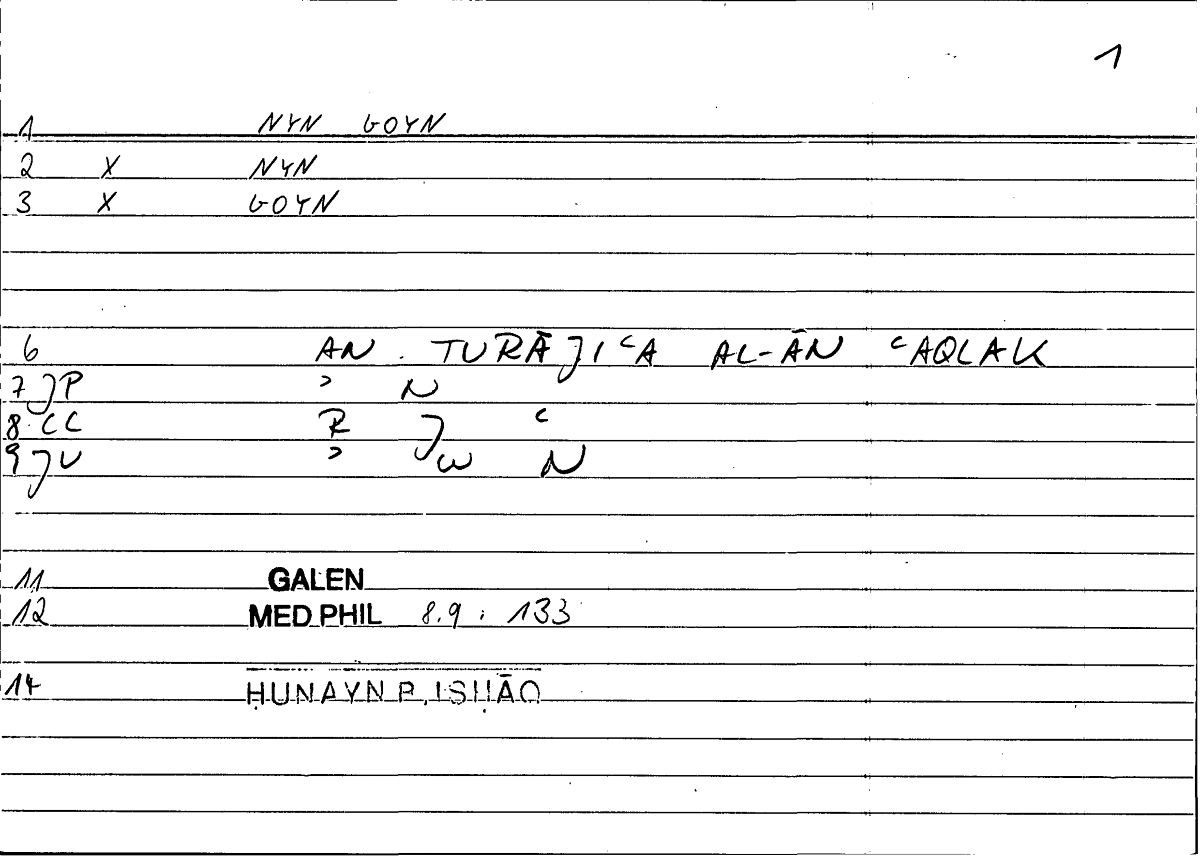 1
1 NYN GOYN
2 X NYN
3 X GOYN
6 AN . TURĀJIʿA AL-ĀN ʿAQLAK
7 JP ʾ N
8 CC R J ʿ
9 JU ʾ Jω N
11 GALEN
12 MED PHIL 8.9 : 133
14 ḤUNAYN B. ISḤĀQ